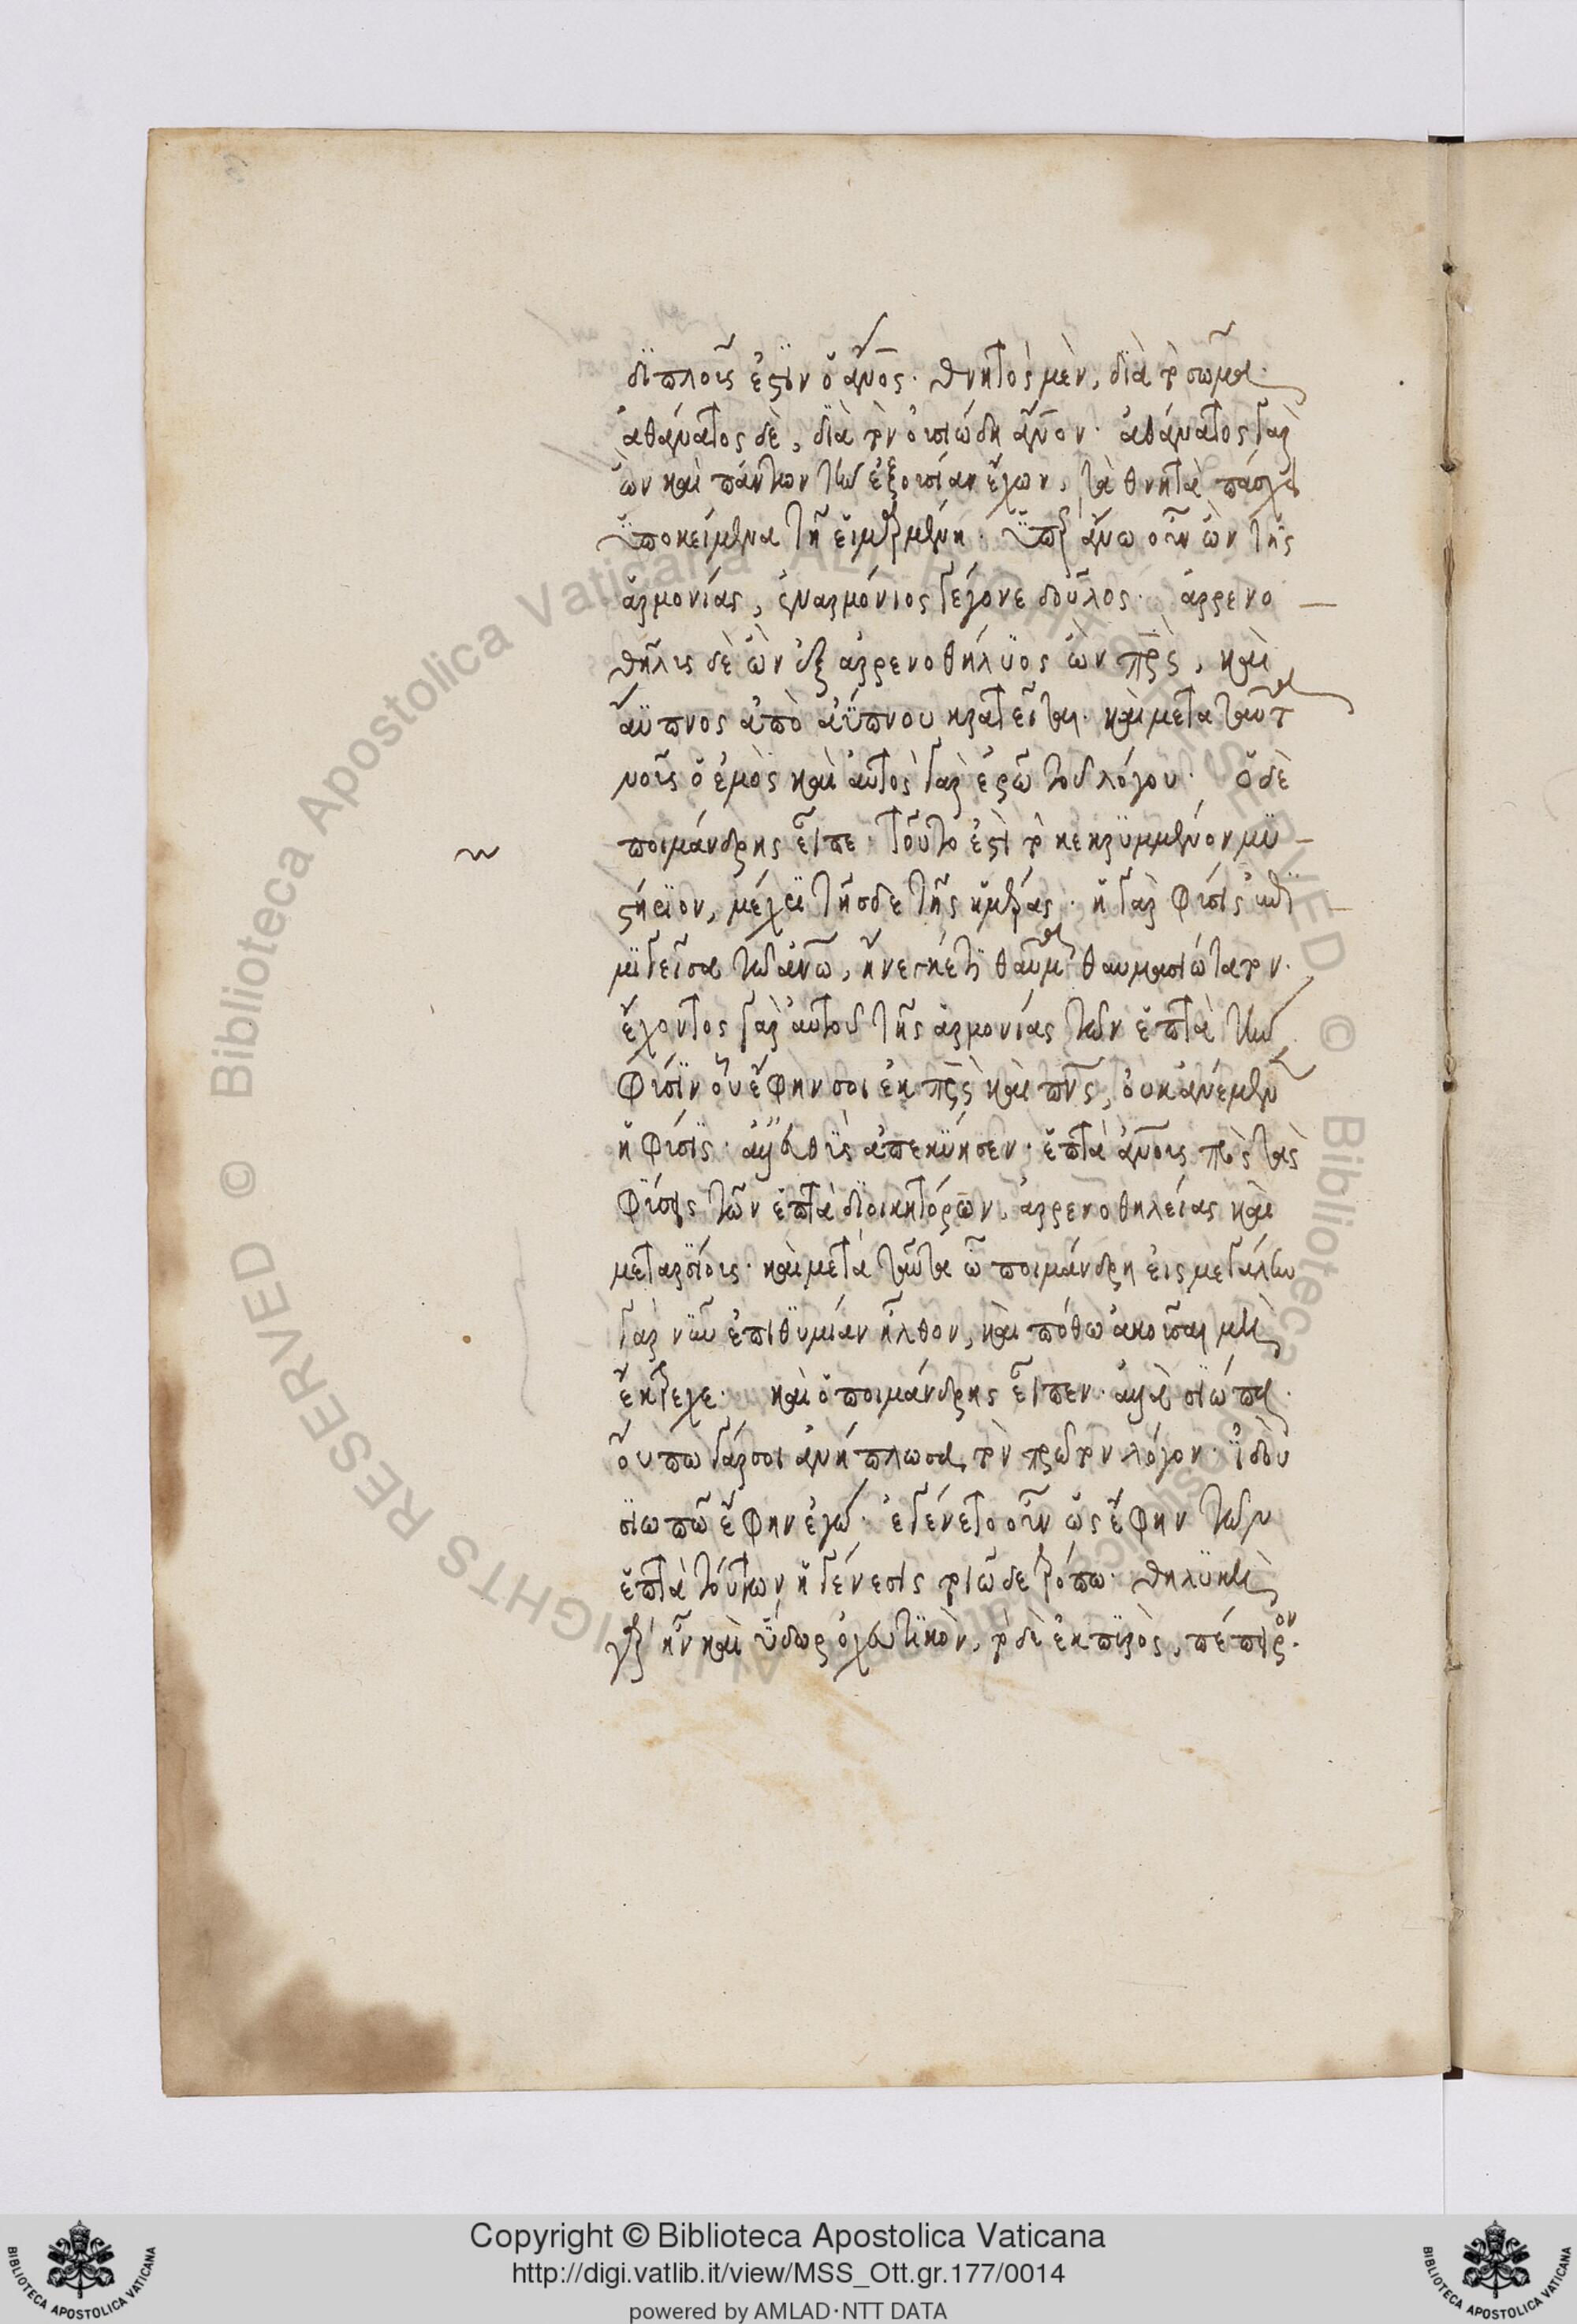 διπλοῦς ἐστϊν ὁ ἄνος· θνητὸς μὲν, διὰ τὸ σῶμα·
ἀθάνατος δὲ, διὰ τὸν οὐσιώδη ἄνον· ἀθάνατος γὰρ
ὢν καὶ πάντων τὴν ἐξουσίαν ἔχων, τὰ θνητὰ πάσχει
ὑποκείμενα τῇ εἱμαρμένη· ὑπεράνω οὖν ὢν τῆς
ἁρμονίας, ἐναρμόνιος γέγονε δοῦλος· ἀρρενο
θῆλυς δὲ ὢν ἐξ ἀρρενοθήλυος ὢν πρς, καὶ
ἄϋπνος ἀπὸ ἀΰπνου κρατεῖται· καὶ μετὰ ταῦτα
νοῦς ὁ ἐμὸς καὶ αὐτὸς γὰρ ἐρῶ τοῦ λόγου· ὁ δὲ
ποιμάνδρης εἶπε· τοῦτο ἐστὶ τὸ κεκρυμμένον μυ
στήριον, μέχρι τῆσδε τῆς ἡμέρας· ἡ γὰρ φύσις ἐπι
μιγεῖσα τῶ ἀνω, ἤνεγκέ τι θαῦμα θαυμασιώτατον·
ἔχοντος γὰρ αὐτοῦ τῆς ἁρμονίας τῶν ἑπτὰ τὴν
φύσιν οὓς ἔφην σοι ἐκ πρς καὶ πνς, οὐκ ἀνέμενεν
ἡ φύσις· ἀλλ' εὐθὺς ἀπεκύησεν· ἑπτὰ ἄνους πρὸς τὰς
φύσεις τῶν ἑπτὰ διοικητόρων, ἀρρενοθηλείας καὶ
μεταρσίους· καὶ μετὰ ταῦτα ὦ ποιμάνδρη εἰς μεγάλην
γὰρ νῦν ἐπιθυμίαν ἦλθον, καὶ ποθῶ ἀκοῦσαι μὴ
ἔκτρεχε· καὶ ὁ ποιμάνδρης εἶπεν· ἀλλὰ σιώπα·
οὔπω γάρ σοι ἀνήπλωσα τὸν πρῶτον λόγον· ἰδοὺ
σιωπῶ ἔφην ἐγώ· ἐγένετο οὖν ὡς ἔφην τῶν
ἑπτὰ τούτων ἡ γένεσις τοιῶδε τρόπω· θηλυκὴ
γὰρ ἦν καὶ ὕδωρ ὀχευτικὸν, τὸ δὲ ἐκ πυρὸς, πέπειρον·